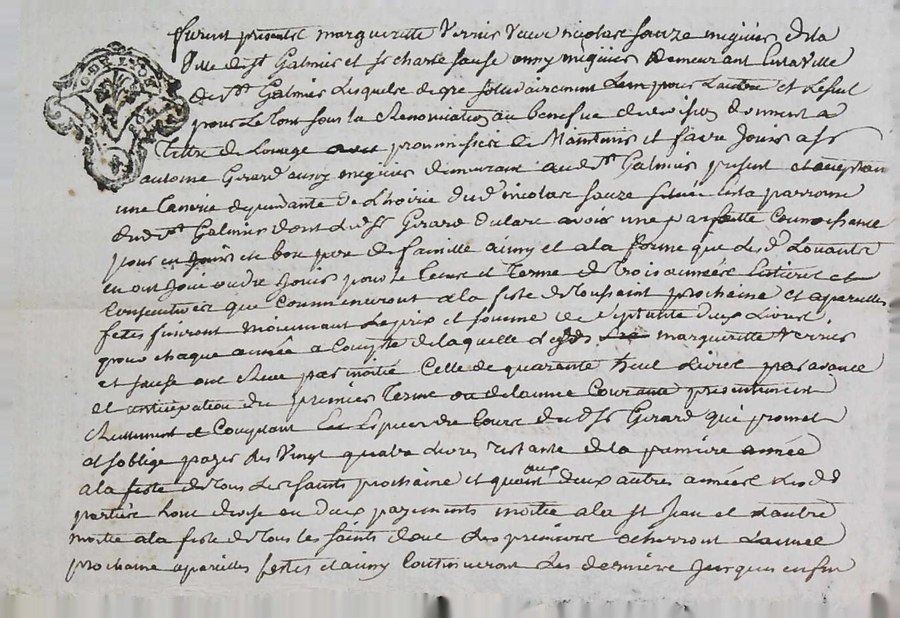 furent presents margueritte Verrier Veuve nicolas sauze megiier de la
Ville de st Galmier et sr charle sause aussy megiier demeurant en la Ville
de st Galmier Lesquels de gre sollidairement L'un pour L'autre et Le seul
pour Le tout sous la Renonciation au benefice de division donnent a
Tittre de Louage promission de Maintenir et faire Jouir a sr
antoine Girard aussy megiier demeurant aud st Galmier present et acceptant
une Tanerie dependante de L'hoirie dud nicolas sauze située en la parroisse
dud st Galmier dont Led sr Girard declare avoir une parfaitte Connoissance
pour en Jouir en bon pere de famille ainsy et a la forme que Les d Louants
en ont Joui ou dre Jouir pour le Tems et Terme de Trois année Entieres et
Consecutives que Commenceront a la feste de Toussaint prochaine et a pareilles
fetes finiront moiennant Le prix et somme de septante deux Livres
pour chaque année a Compte de laquelle margueritte Verrier
et sause ont Receu par moitié Celle de quarante huit Livres par avance
et anticipation du premier Terme ou de l'année Courante presentement
Reellement et Comptant En Especes de Cours dud sr Girard qui promet
et soblige payer les Vingt quatre Livres restante de la premiere année
a la feste de Tous Les saints prochaine et quant aux deux autres années Les dd
parties sont en deux payements moitié a la st Jean et L'autre
moitié a la feste de Tous les saints dont Les premiers echerront L'année
prochaine a pareilles festes et ainsy Continueront Les dernière Jusques en fin